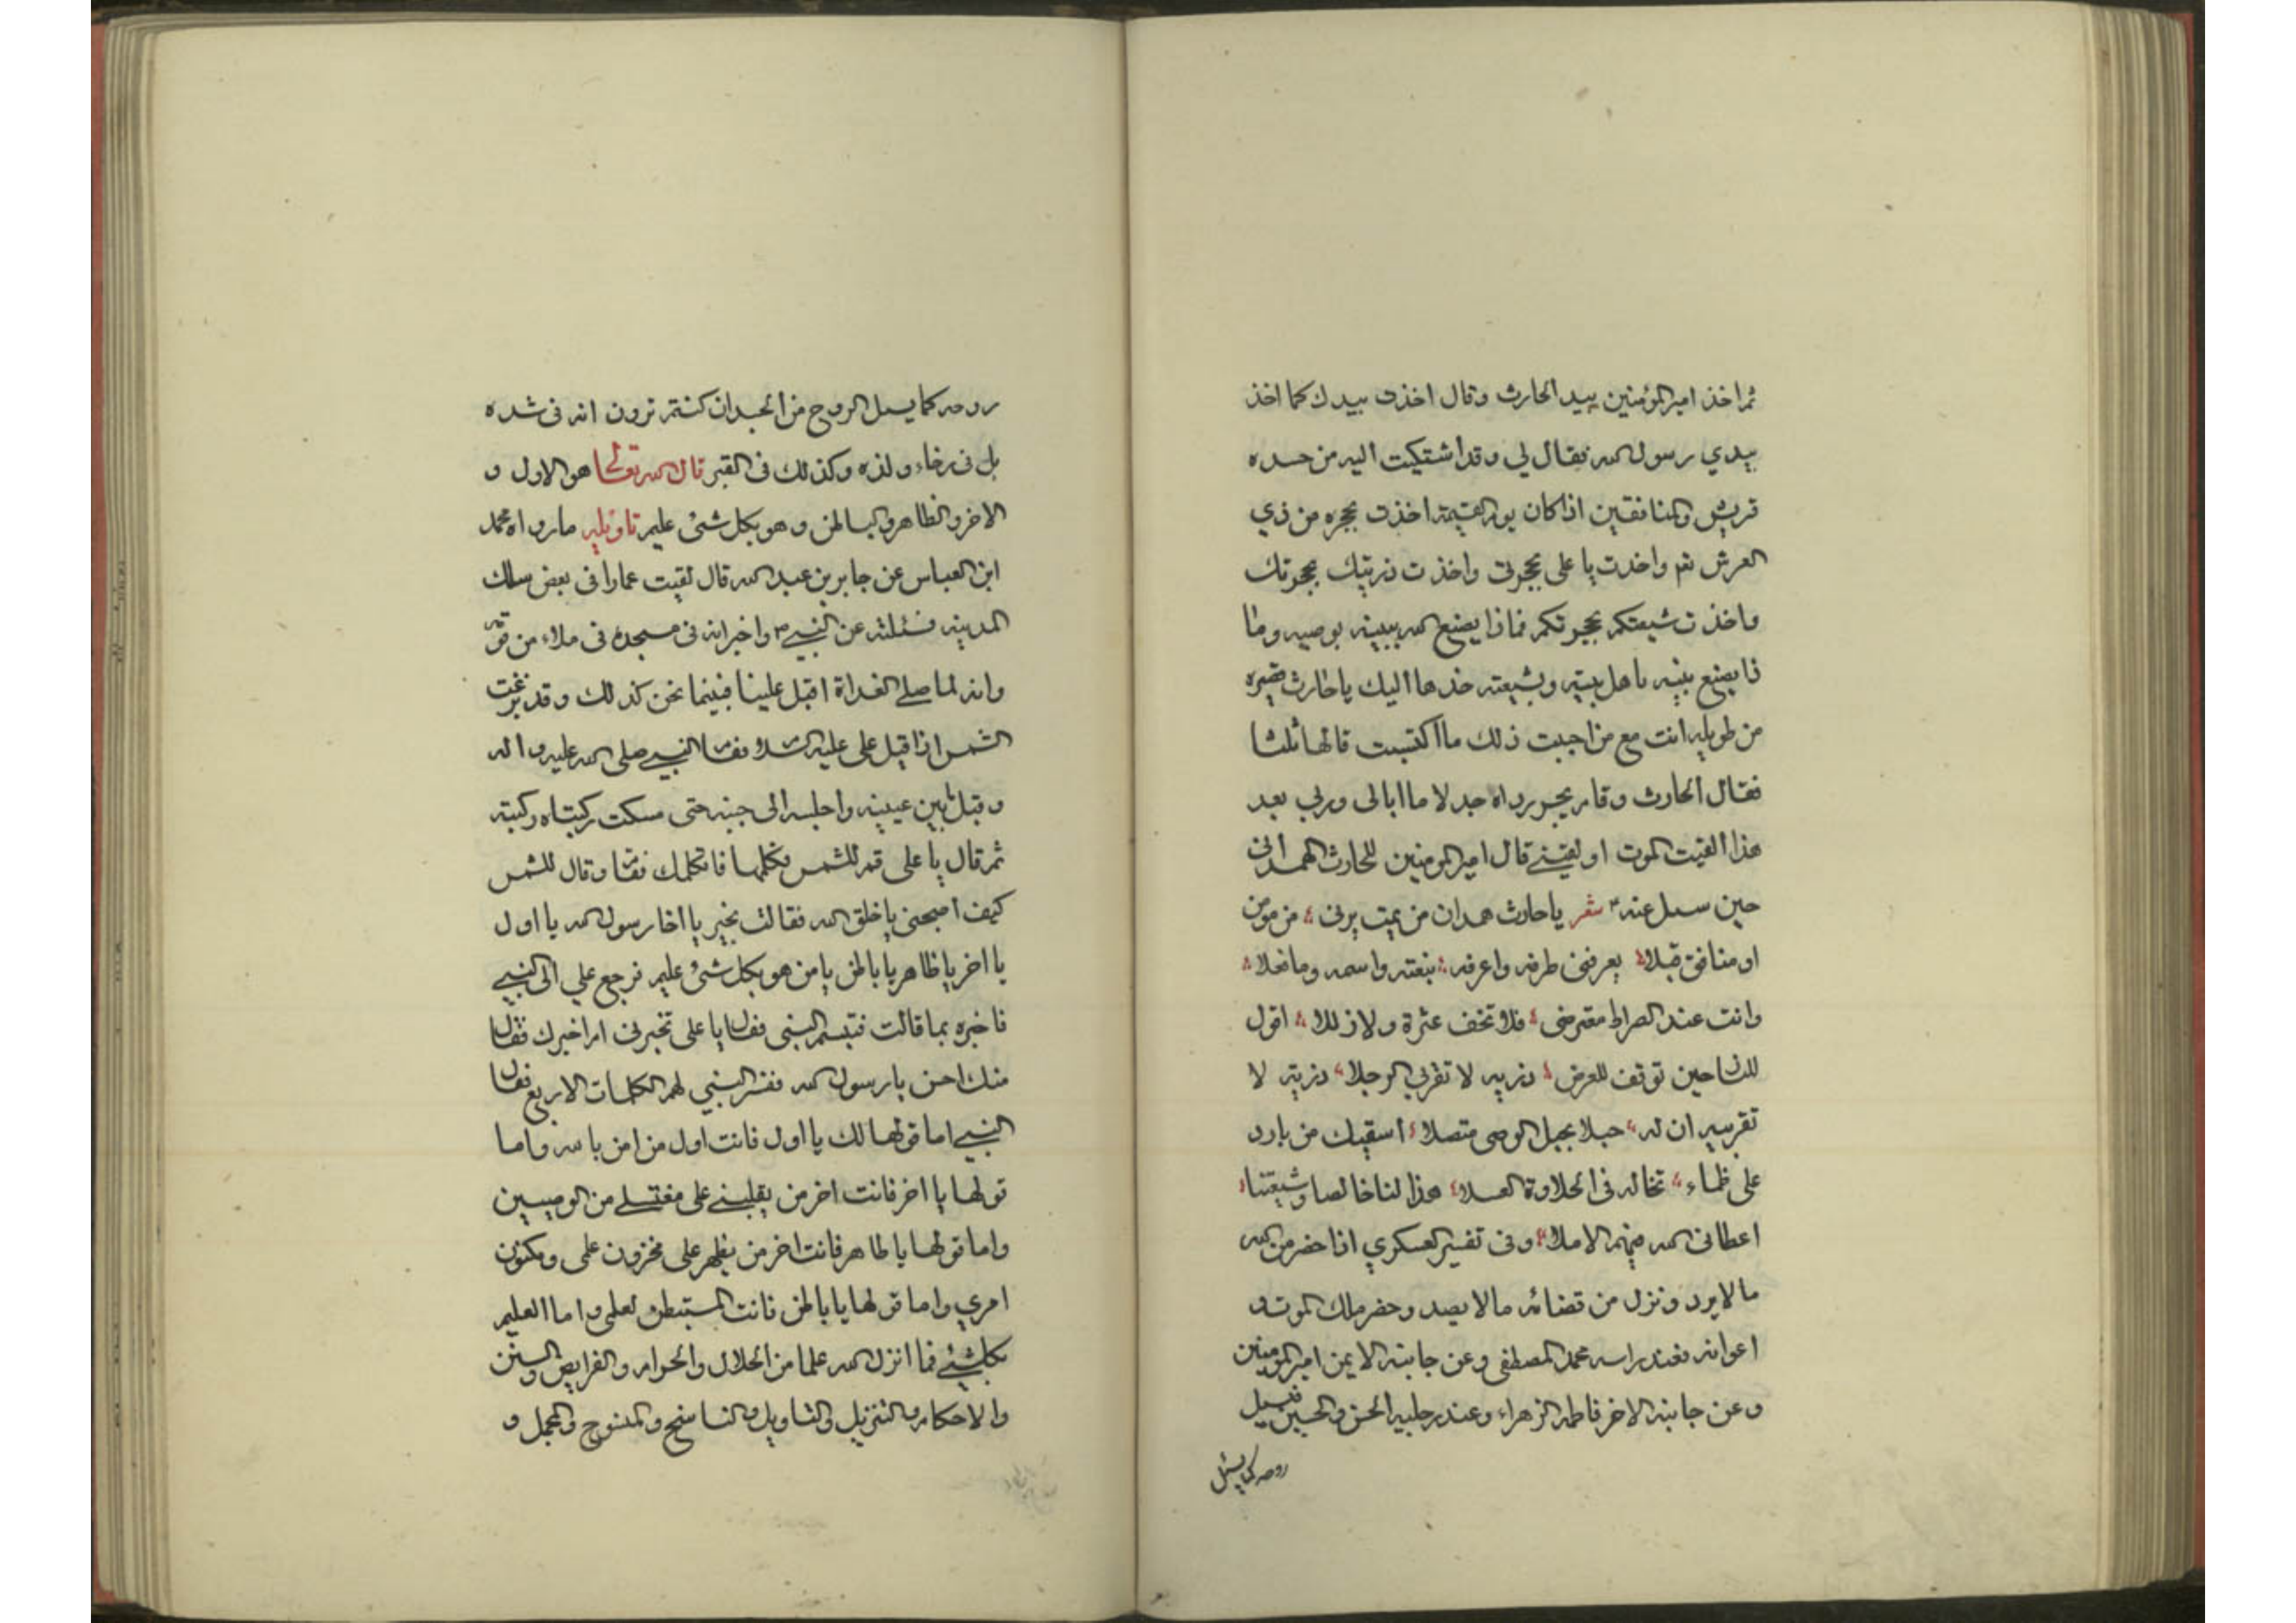 ثم اخذ امير المؤمنين بيد الحارث وقال اخذت بيدك كما اخذ
بيدي رسول الله فقال لي وقد اشتكيت اليه من حسده
قريش والمنافقين اذا كان يوم القيمة اخذت بحجزه من ذي
العرش ثم واخذت يا على بحجزتى واخذت ذريتك بحجزتك
واخذت شيعتكم بحجزتكم فماذا يصنع الله ببينه بوصيه وما
ذا يصنع بنيه باهل بيته وبشيعته خذها اليك يا حارث قصيره
من طويله انت مع من احببت ذلك ما اكتسبت قالها ثلثا
فقال الحارث وقام يجر رداه جدلا ما ابالى وربي بعد
هذا القيت الموت او لقينى قال امير المومنين للحارث الهمدانى
حين سىل عنه شعر يا حارث همدان من يمت يرنى من مومن
او منافق قبلا يعرفنى طرفه واعرفه بنعته واسمه وما فعلا
وانت عند الصراط معترضى فلا تخف عثرة ولا زللا اقول
للنا حين توقف للعرض ذريه لا تقربي الرجلا ذريه لا
تقربيه ان له حبلا بحبل الوصى متصلا اسقيك من بارد
على ظماء تخاله فى الحلاوة العسلا هذا لنا خالصا وشيعتنا
اعطانى الله فيهم الاملا وفى تفسير العسكري اذا حضر من الله
ما لا يرد ونزل من قضائه ما لا يصد وحضر ملك الموت و
اعوانه فعند راسه محمد المصطفى وعن جانبه الايمن امير المومنين
وعن جانبه الاخر فاطمه الزهراء وعند رجليه الحسن والحسين فيسيل
روحه كما يسل
روحه كما يسل الروح من الجسد ان كنتم ترون انه فى شده
بل فى رخاء ولذه وكذلك فى القبر قال الله تعالى هو الاول و
الاخر والظاهر والباطن وهو بكل شئ عليم تاويله ما رواه محمد
ابن العباس عن جابر بن عبد الله قال لقيت عمارا فى بعض سلك
المدينه فسئلته عن النبي واخبر انه فى مسجده فى ملاء من قومه
وانه لما صلى الغداة اقبل علينا فبينما نحن كذلك وقد بزغت
الشمس اذ اقبل على عليه السلام فقام النبي صلى الله عليه واله
وقبل بين عينيه واجلسه الى جنبه حتى مسكت ركبتاه ركبته
ثم قال يا على قم للشمس فكلمها فانها تكلمك فقام وقال للشمس
كيف اصبحتى يا خلق الله فقالت بخير يا اخا رسول الله يا اول
يا اخر يا ظاهر يا باطن يا من هو بكل شئ عليم فرجع علي الى النبي
فاخبره بما قالت فتبسم النبى فقال يا على تخبرنى ام اخبرك فقال
منك احسن يا رسول الله ففسر النبي لهم الكلمات الاربع فقال
النبي اما قولها لك يا اول فانت اول من امن بالله واما
قولها يا اخر فانت اخر من يقلبنى على مغتسلى من الوصيين
واما قولها يا ظاهر فانت اخر من يظهر على مخزون علمى ومكنون
امري واما قولها يا باطن فانت المستبطن لعلمى واما العليم
بكل شئ فما انزل الله علما من الحلال والحرام والفرايض والسنن
والاحكام والتنزيل والتاويل والناسخ والمنسوخ والمجمل و